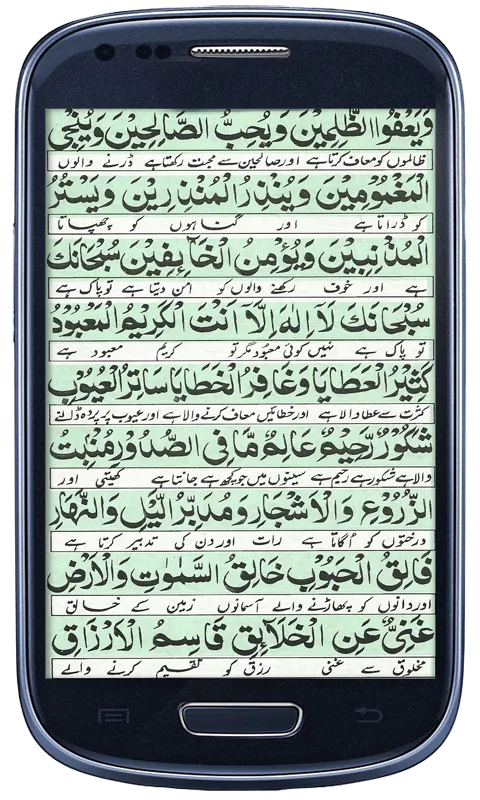 وَيَعْفُوا الظّٰلِمِيْنَ وَيُحِبُّ الصَّالِحِيْنَ وَيُنْجِي
ظالموں کو معاف کرتا ہے اور صالحین سے محبت رکھتا ہے ڈرنے والوں
الْمَغْمُوْمِيْنَ وَيُنْذِرُ الْمُنْذِرِيْنَ وَيَسْتُرُ
کو ڈراتا ہے اور گناہوں کو چھپاتا
الْمُذْنِبِيْنَ وَيُؤْمِنُ الْخَآئِفِيْنَ سُبْحَانَكَ
ہے اور خوف رکھنے والوں کو امن دیتا ہے تو پاک ہے
سُبْحَانَكَ لَآ اِلٰهَ اِلَّآ اَنْتَ الْكَرِيْمُ الْمَعْبُوْدُ
تو پاک ہے نہیں کوئی معبود مگر تو کریم معبود ہے
كَثِيْرُ الْعَطَايَا وَغَافِرُ الْخَطَايَا سَاتِرُ الْعُيُوْبِ
کثرت سے عطا والا ہے اور خطائیں معاف کرنے والا ہے اور عیوب پر پردہ ڈالنے
شَكُوْرٌ رَّحِيْمٌ عَالِمٌ مَّا فِى الصُّدُوْرِ مُنْبِتُ
والا ہے شکور ہے رحیم ہے سینوں میں جو کچھ ہے جانتا ہے کھیتی اور
الزُّرُوْعِ وَالْاَشْجَارِ وَمُدَبِّرُ الَّيْلِ وَالنَّهَارِ
درختوں کو اُگاتا ہے رات اور دن کی تدبیر کرتا ہے
فَالِقُ الْحُبُوْبِ خَالِقُ السَّمٰوٰتِ وَالْاَرْضِ
اور دانوں کو پھاڑنے والے آسمانوں زمین کے خالق
غَنِيٌّ عَنِ الْخَلَآئِقِ قَاسِمُ الْاَرْزَاقِ
مخلوق سے غنی رزق کو تقسیم کرنے والے